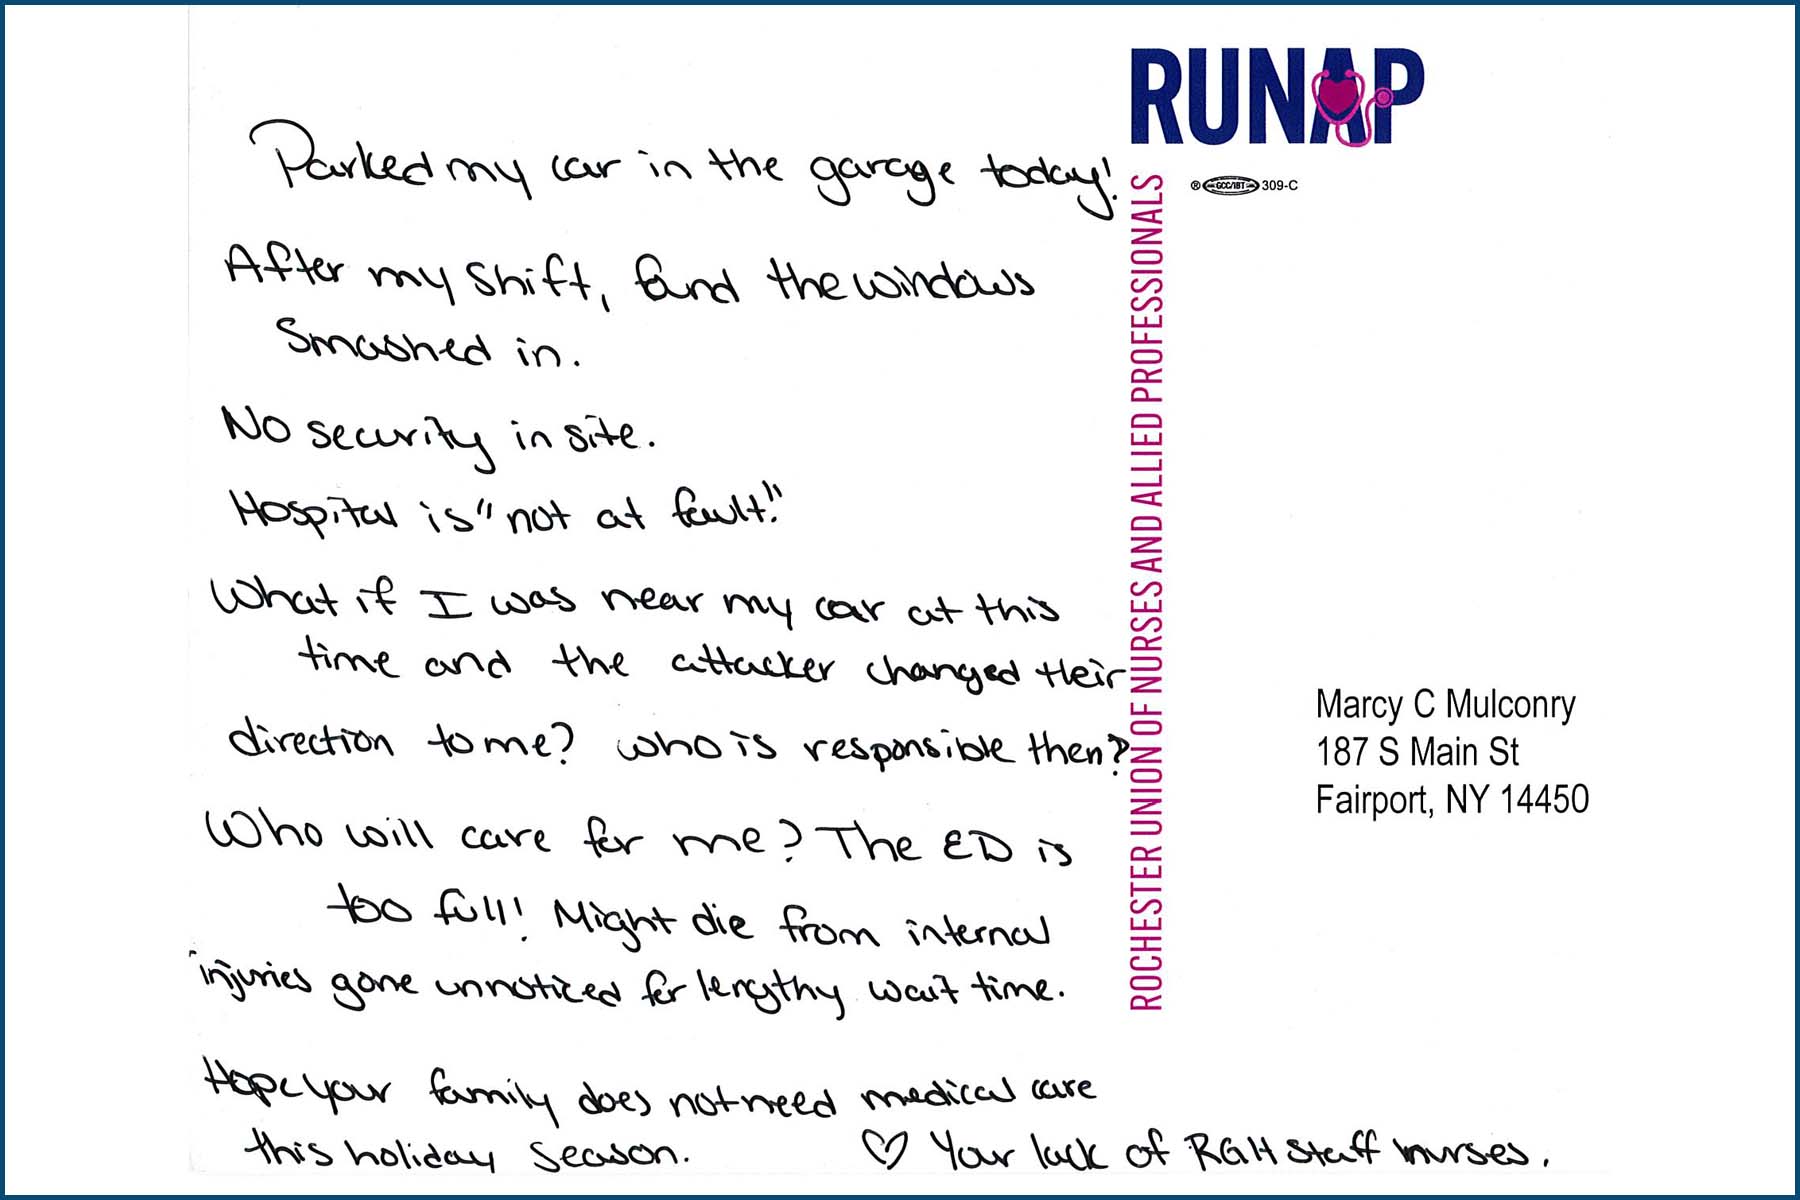 Parked my car in the garage today!
After my shift, found the windows
smashed in.
No security in site.
Hospital is "not at fault!"
What if I was near my car at this
time and the attacker changed their
direction to me? Who is responsible then?
Who will care for me? The ED is
too full! Might die from internal
injuries gone unnoticed for lengthy wait time.
Hope your family does not need medical care
this holiday season.
♡ Your lack of RGH staff nurses.
RUNAP
® GCC/IBT 309-C
ROCHESTER UNION OF NURSES AND ALLIED PROFESSIONALS
Marcy C Mulconry
187 S Main St
Fairport, NY 14450